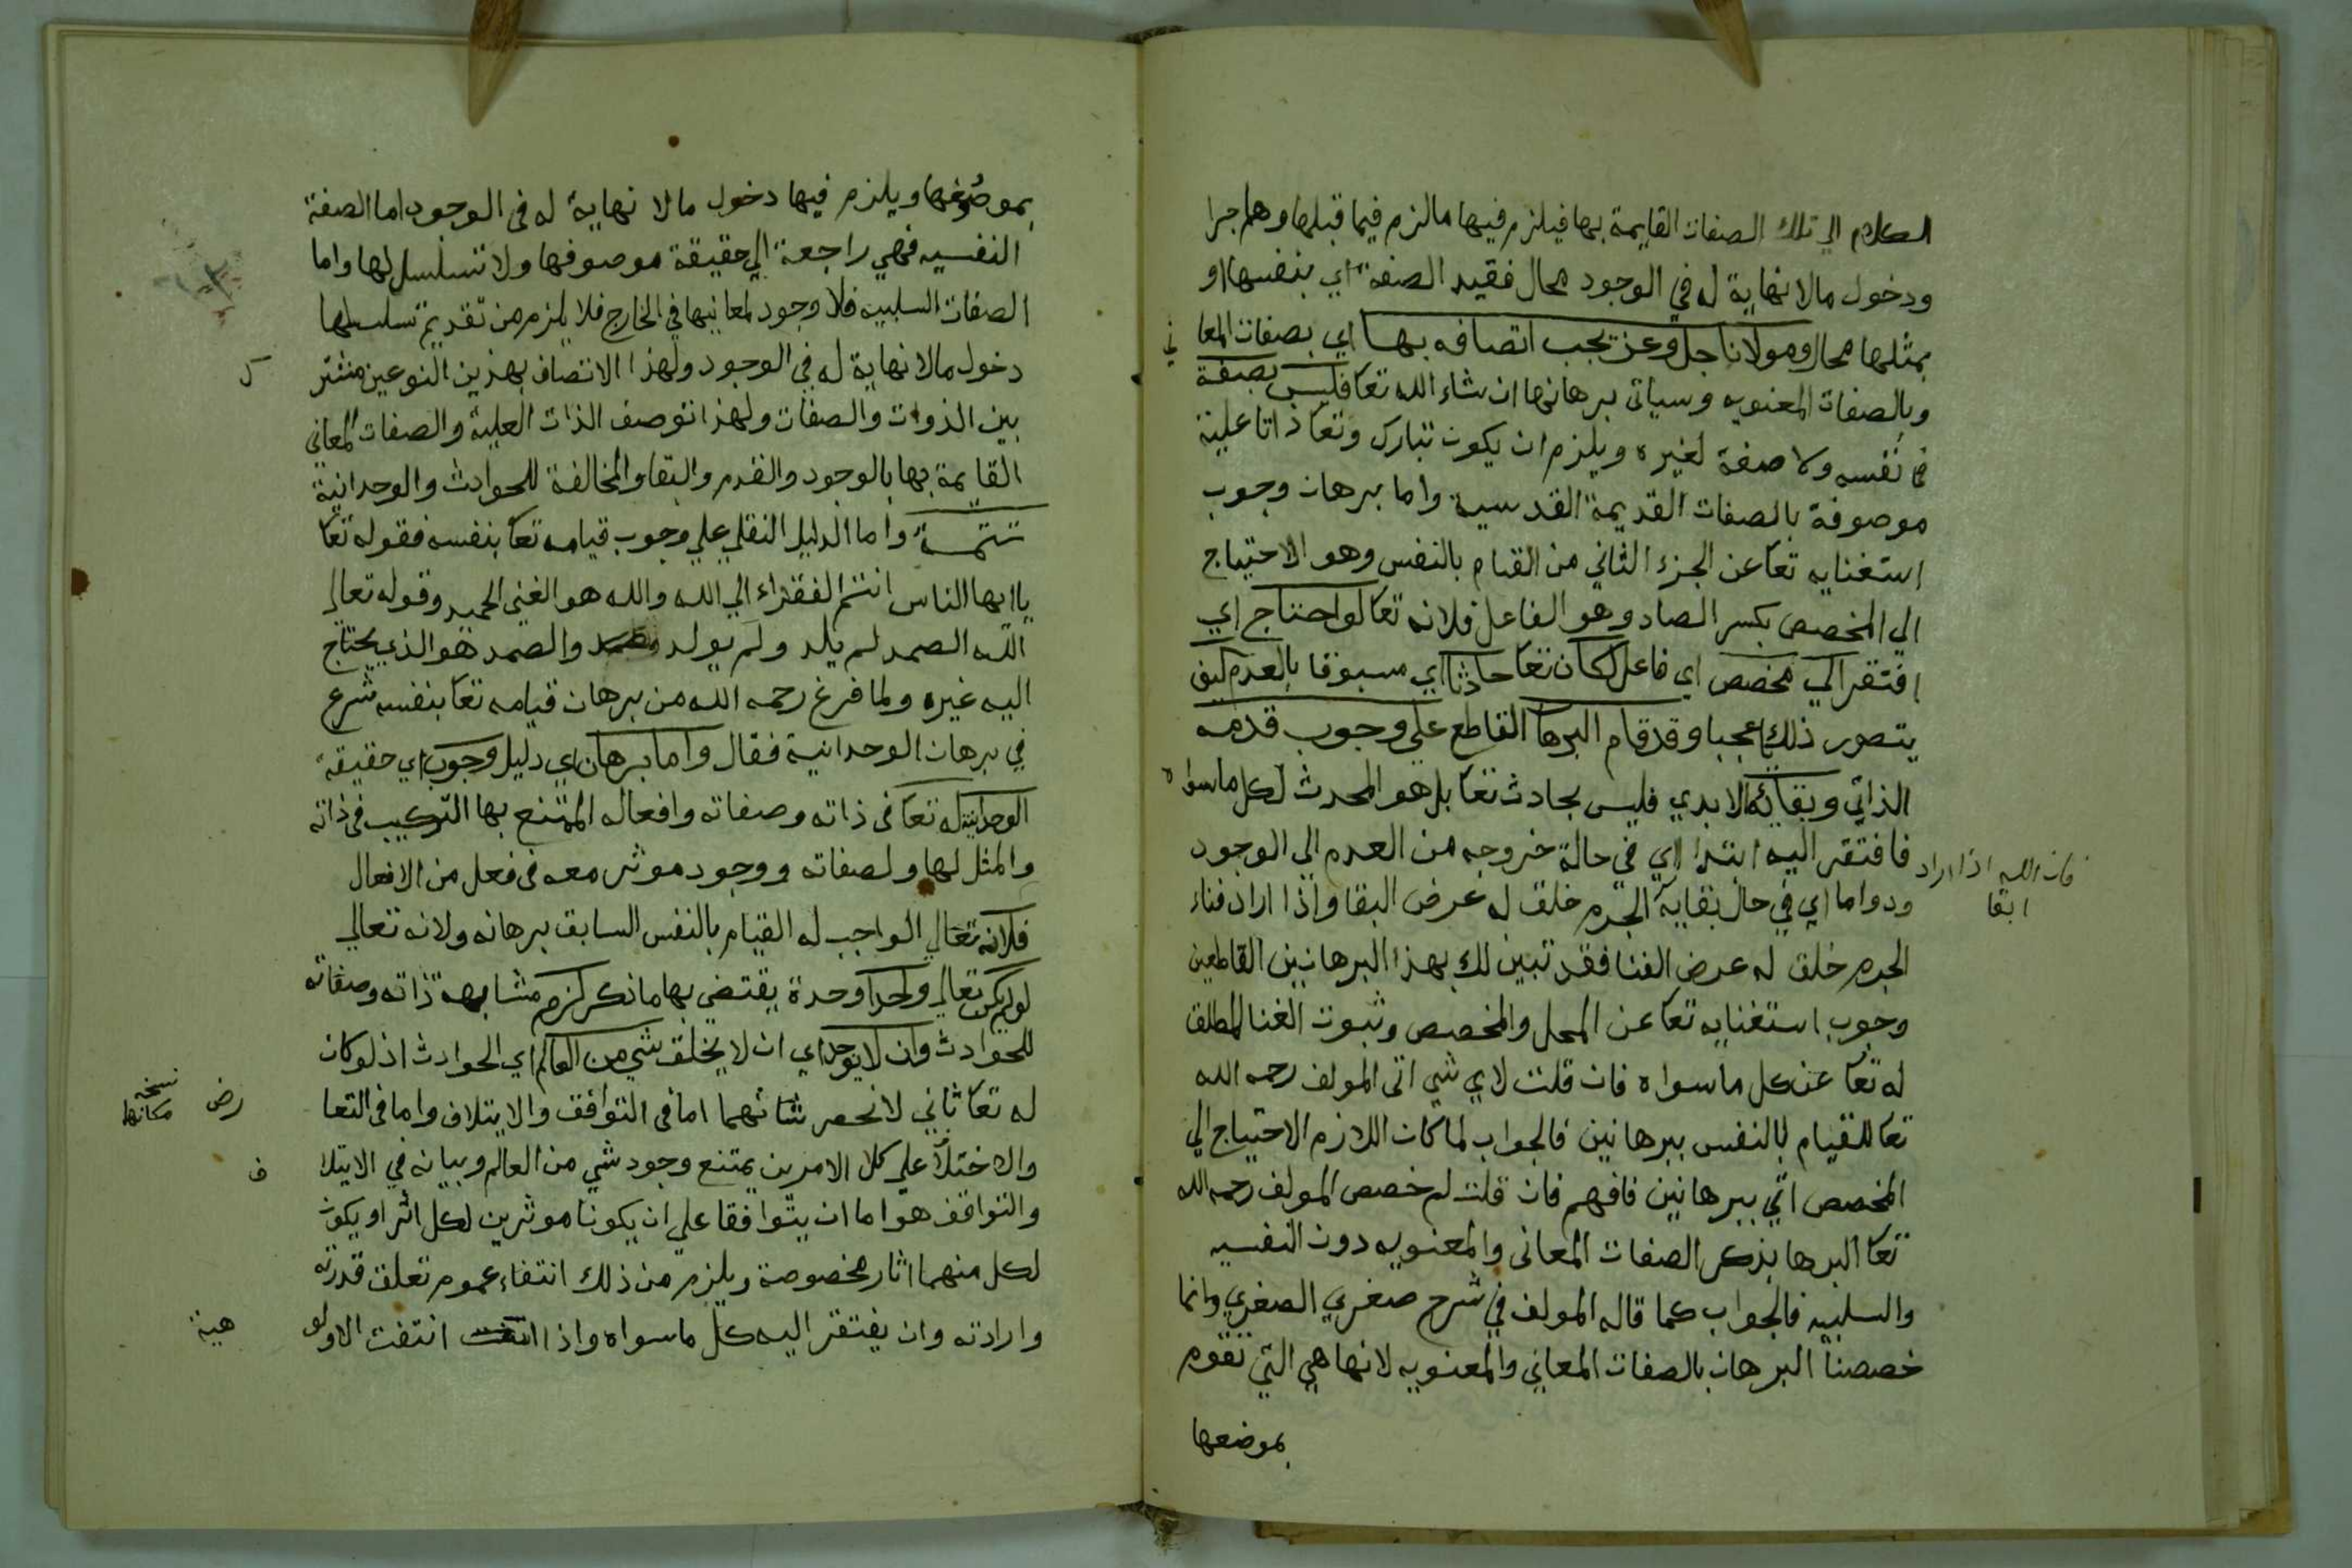 الكلام الي تلك الصفات القايمة بها فيلزم فيها ما لزم فيما قبلها وهلم جرا
ودخول مالا نهاية له في الوجود محال فقيد الصفة اي بنفسها او
بمثلها محال ومولانا جل وعز يجب اتصافه بها اي بصفات المعا
ني
وبالصفات المعنويه وسياتي برهانها ان شاء الله تعا فليس بصفة
في نفسه ولا صفة لغيره ويلزم ان يكون تبارك وتعا ذاتا علية
موصوفة بالصفات القديمة القدسية واما برهان وجوب
استغنايه تعا عن الجزء الثاني من القيام بالنفس وهو الاحتياج
الي المخصص بكسر الصاد وهو الفاعل فلانه تعا لو احتاج اي
افتقر الي مخصص اي فاعل لكان تعا حادثا اي مسبوقا بالعدم كيف
يتصور ذلك يا عجبا وقد قام البرها القاطع علي وجوب قدمه
الذاتي وبقائه الابدي فليس بحادث تعا بل هو المحدث لكل ما سواه
فافتقر اليه ابتدا اي في حالة خروجه من العدم الي الوجود
فان الله اذا اراد
ابقا
ودواما اي في حال بقايه الجرم خلق له عرض البقا واذا اراد فناء
الجرم خلق له عرض الفنا فقد تبين لك بهذا البرهانين القاطعين
وجوب استغنايه تعا عن المحل والمخصص وثبوت الغنا المطلق
له تعا عن كل ما سواه فان قلت لاي شي اتى المولف رحمه الله
تعا للقيام بالنفس ببرهانين فالجواب لما كان اللازم الاحتياج الي
المخصص اتي ببرهانين فافهم فان قلت لم خصص المولف رحمه الله
تعا البرها بذكر الصفات المعاني والمعنويه دون النفسيه
والسلبيه فالجواب كما قاله المولف في شرح صغري الصغري وانما
خصصنا البرهان بالصفات المعاني والمعنويه لانها هي التي تقوم
بموضعها
بموضعها ويلزم فيها دخول مالا نهاية له في الوجود اما الصفة
النفسيه فهي راجعة الي حقيقة موصوفها ولا تسلسل لها واما
الصفات السلبيه فلا وجود لمعانيها في الخارج فلا يلزم من تقديم تسلسلها
دخول مالا نهاية له في الوجود ولهذا الاتصاف بهذين النوعين مشتر
ك
بين الذوات والصفات ولهذا توصف الذات العلية والصفات المعاني
القايمة بها بالوجود والقدم والبقا والمخالفة للحوادث والوحدانية
تتمة واما الدليل النقلي علي وجوب قيامه تعا بنفسه فقوله تعا
يا ايها الناس انتم الفقراء الي الله والله هو الغني الحميد وقوله تعالي
الله الصمد لم يلد ولم يولد والصمد هو الذي يحتاج
اليه غيره ولما فرغ رحمه الله من برهان قيامه تعا بنفسه شرع
في برهان الوحدانية فقال واما برهان اي دليل وجوب اي حقيقة
الوحدانية له تعا في ذاته وصفاته وافعاله الممتنع بها التركيب في ذاته
والمثل لها ولصفاته ووجود موثر معه في فعل من الافعال
فلانه تعالي الواجب له القيام بالنفس السابق برهانه ولانه تعالي
لو لم يكن تعالي واحدا وحدة يقتضي بها ما ذكر لزم مشابهة ذاته وصفاته
للحوادث وان لا يوجد اي ان لا يخلق شي من العالم اي الحوادث اذ لو كان
له تعا ثاني لانحصر شانهما اما في التوافق والايتلاف واما في التعا
رض
نسخه
مكانها
والاختلا علي كلا الامرين يمتنع وجود شي من العالم وبيانه في الايتلا
ف
والتوافق هو اما ان يتوافقا علي ان يكونا موثرين لكل اثر او يكون
لكل منهما اثار مخصوصة ويلزم من ذلك انتفاء عموم تعلق قدرته
وارادته وان يفتقر اليه كل ما سواه واذا انتفت الاولو
هية